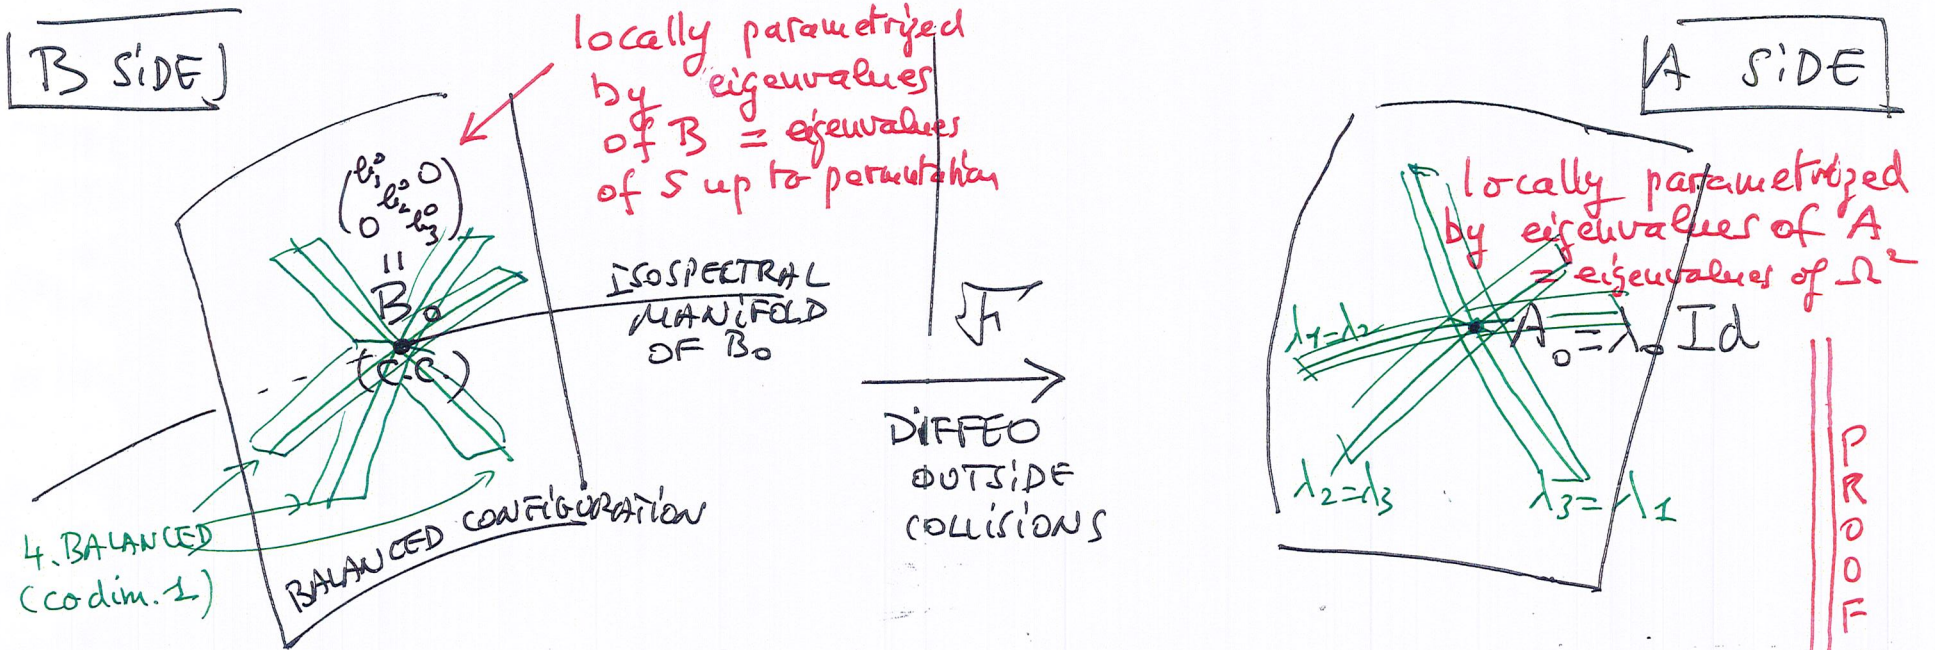 B SiDE
locally parametrized
by eigenvalues
of B = eigenvalues
of S up to permutation
b₁⁰ 0
b₂⁰
0 b₃⁰
=
B₀
(C.C.)
ISOSPECTRAL
MANiFOLD
OF B₀
4. BALANCED
(codim. 1)
BALANCED CONFiGURATiON
DiFFEO
OUTSiDE
COLLiSiONS
A SiDE
locally parametrized
by eigenvalues of A
= eigenvalues of Ω²
λ₁=λ₂
A₀=λ₀ Id
λ₂=λ₃
λ₃=λ₁
PROOF